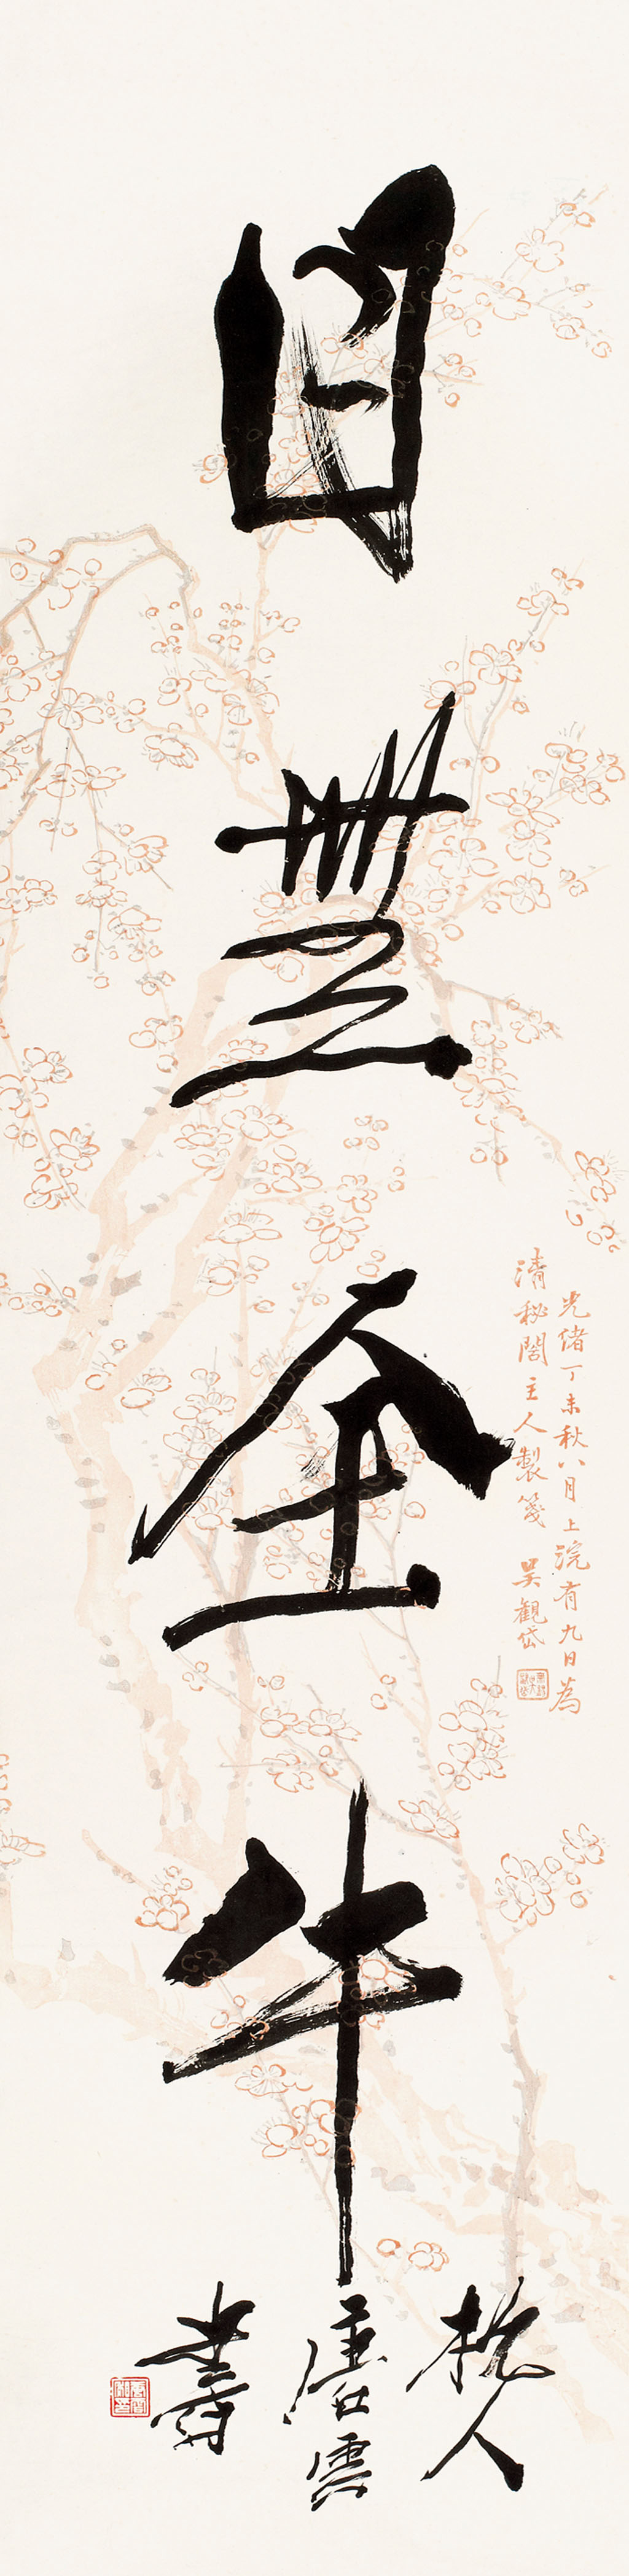 目無全牛
光緒丁未秋八月上浣有九日為
清秘閣主人製箋 吳觀岱
杭人
唐雲